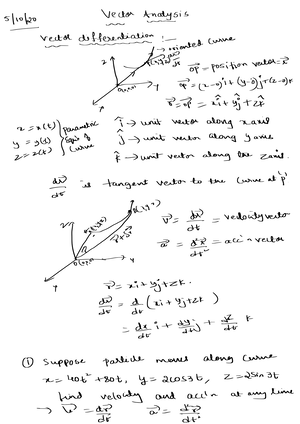 5/10/20
Vector Analysis
Vector differentiation :-
oriented curve
OP = position vector = r⃗
OP = (x-0)i + (y-0)j + (z-0)k
r⃗ = OP = xî + yĵ + zk̂
x = x(t)
y = y(t)
z = z(t)
parametric eqn of curve
î → unit vector along x axis
ĵ → unit vector along y axis
k̂ → unit vector along the z axis.
dr⃗/dt is tangent vector to the curve at 'P'
v⃗ = dr⃗/dt = velocity vector
a⃗ = d²r⃗/dt² = accn vector
r⃗ = xi + yj + zk.
dr⃗/dt = d/dt (xi + yj + zk)
= dx/dt i + dy/dt j + dz/dt k
① Suppose particle moves along curve
x = 40t² + 80t, y = 2cos3t, z = 2sin3t
find velocity and accn at any time
→ v⃗ = dr⃗/dt a⃗ = d²r⃗/dt²